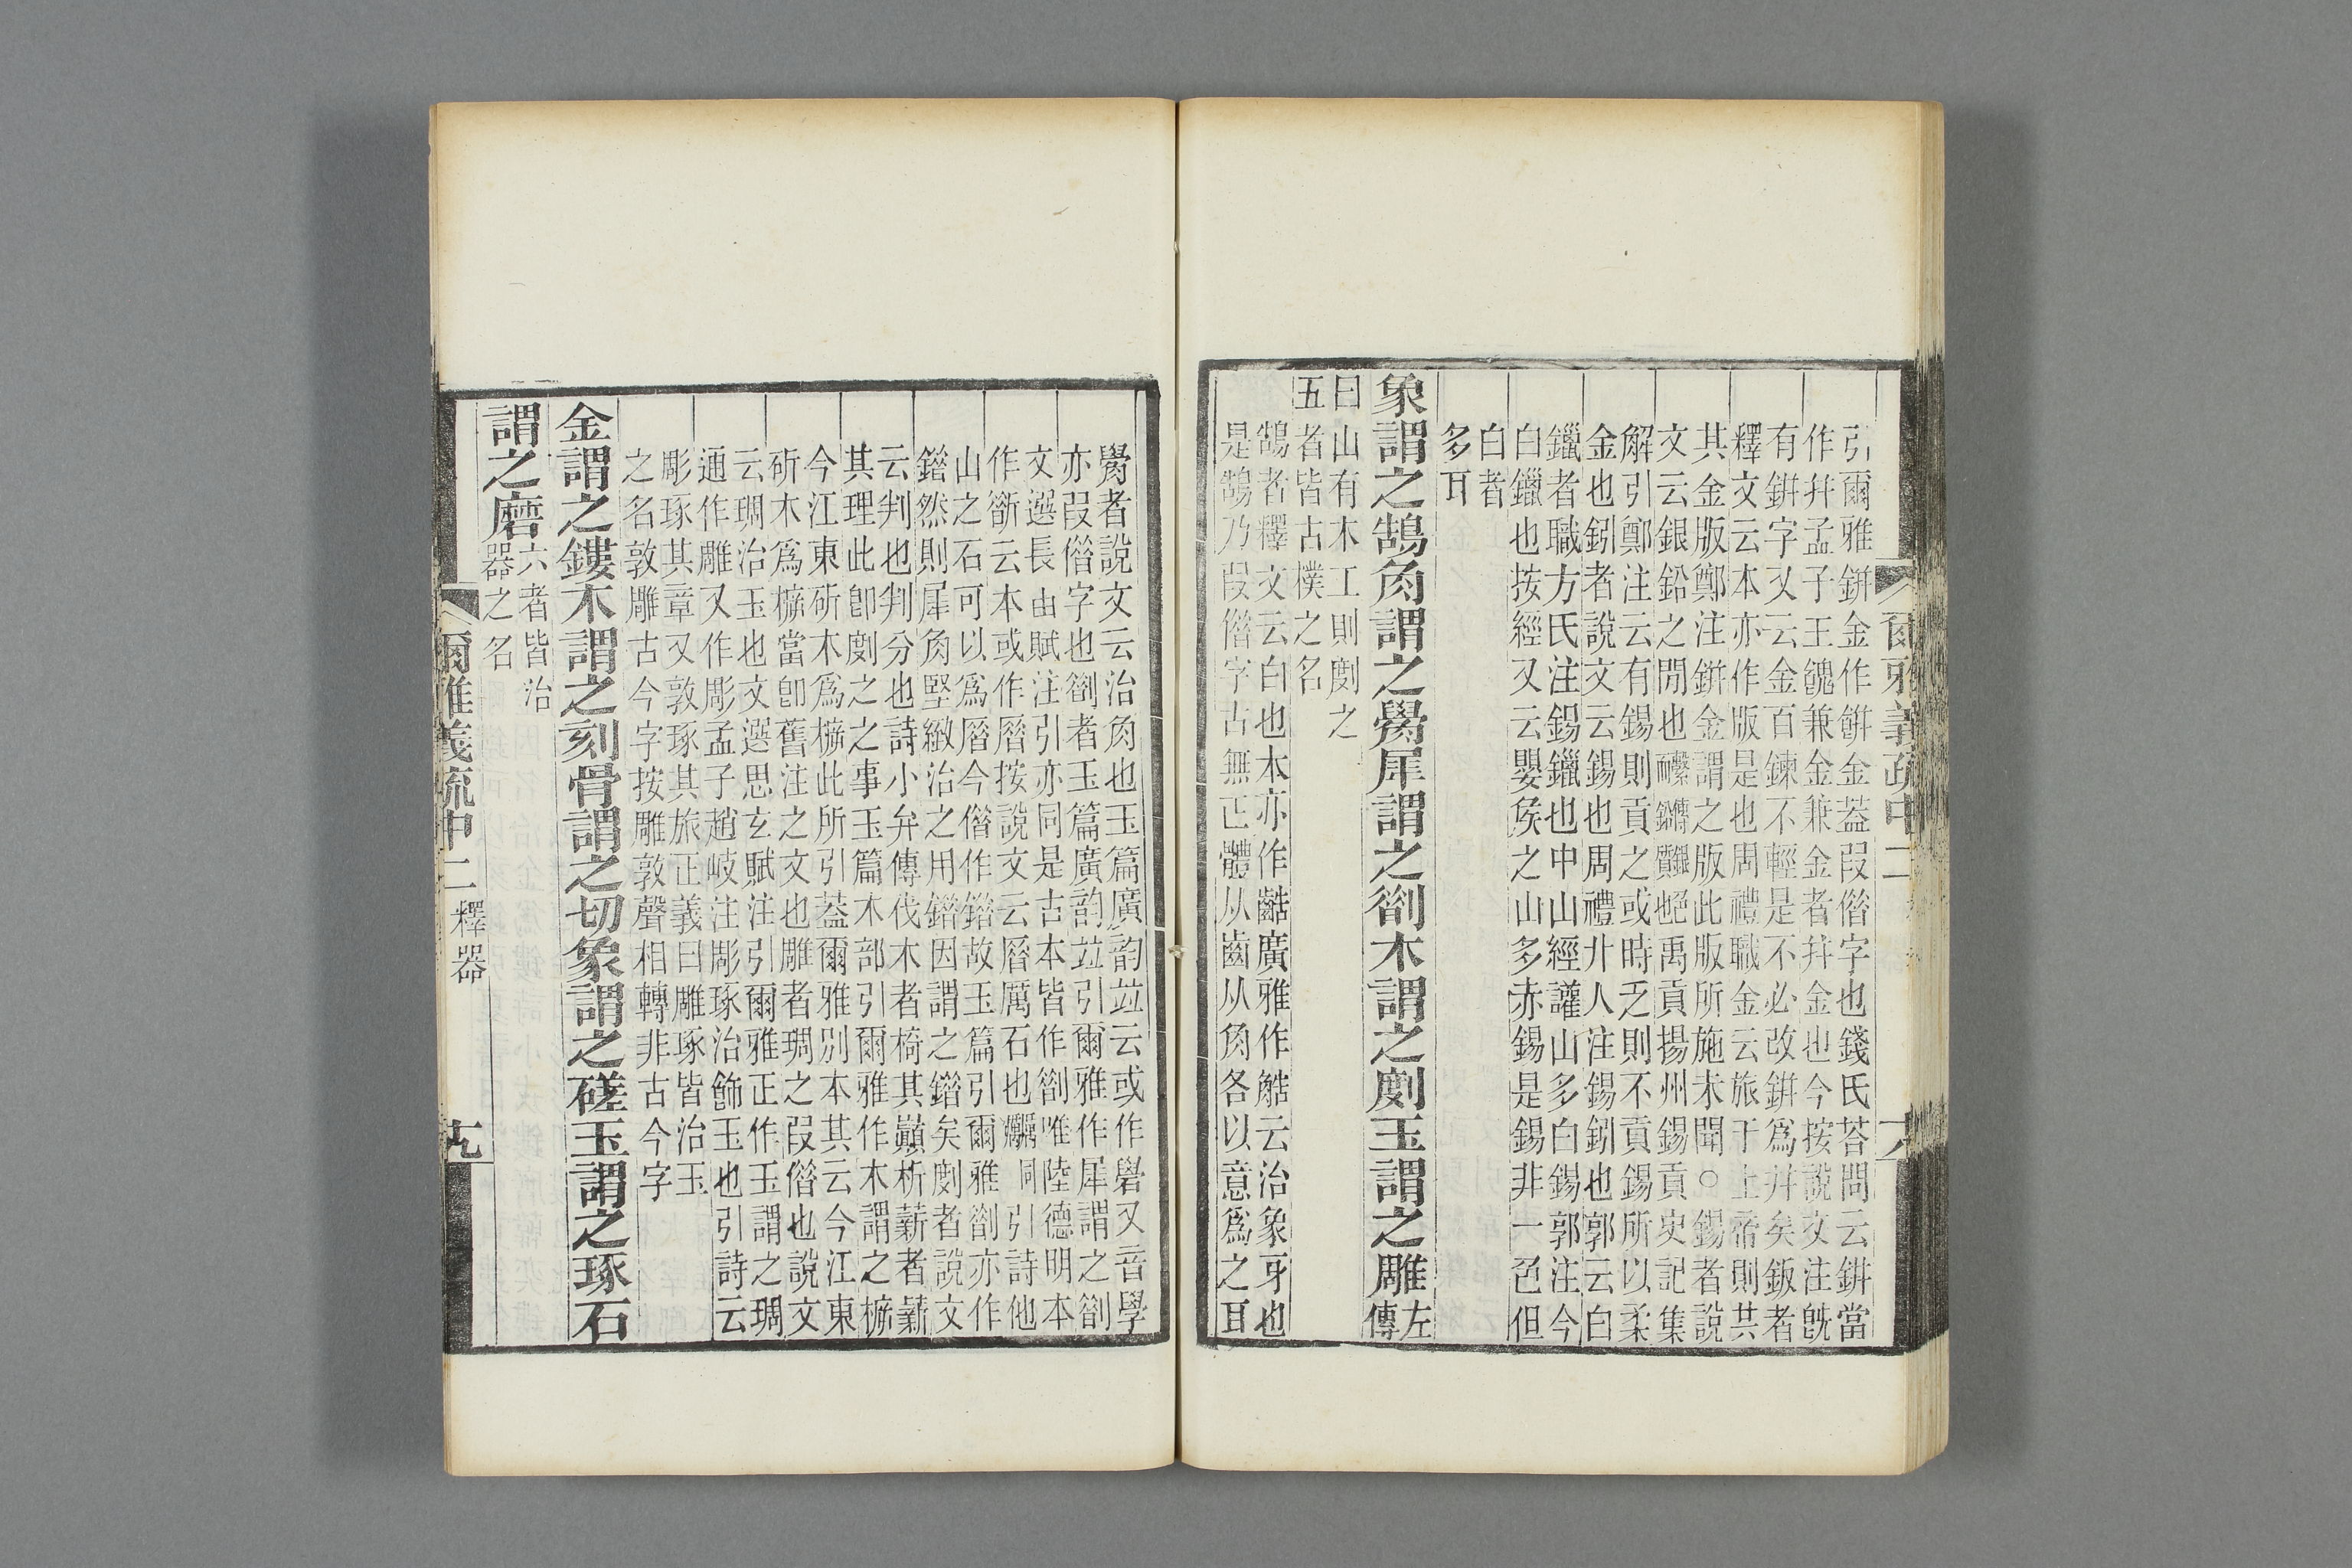 引爾雅鉼金作餅金蓋叚僭字也錢氏荅問云鉼當
作幷孟子王餽兼金兼金者幷金也今按說文注旣
有鉼字又云金百鍊不輕是不必改鉼爲幷矣鈑者
釋文云本亦作版是也周禮職金云旅于上帝則共
其金版鄭注鉼金謂之版此版所施未聞○錫者說
文云銀鉛之閒也禹貢揚州錫貢史記集
解引鄭注云有錫則貢之或時乏則不貢錫所以柔
金也鈏者說文云錫也周禮廾人注錫鈏也郭云白
鑞者職方氏注錫鑞也中山經讙山多白錫郭注今
白鑞也按經又云嬰矦之山多赤錫是錫非一色但
白者
多耳
象謂之鵠角謂之觷犀謂之㓸木謂之剫玉謂之雕左傳
曰山有木工則剫之
五者皆古樸之名
鵠者釋文云白也本亦作䶜廣雅作觡云治象牙也
是鵠乃叚僭字古無正體从齒从角各以意爲之耳
觷者說文云治角也玉篇廣韵竝云或作礐又音學
亦叚僭字也㓸者玉篇廣韵竝引爾雅作犀謂之㓸
文選長由賦注引亦同是古本皆作㓸唯陸德明本
作斮云本或作厝按說文云厝厲石也引詩他
山之石可以爲厝今僭作錯故玉篇引爾雅㓸亦作
錯然則犀角堅緻治之用錯因謂之錯矣剫者說文
云判也判分也詩小弁傳伐木者椅其巔析薪者䕭
其理此卽剫之之事玉篇木部引爾雅作木謂之㯉
今江東斫木爲㯉此所引蓋爾雅別本其云今江東
斫木爲㯉當卽舊注之文也雕者琱之叚僭也說文
云琱治玉也文選思玄賦注引爾雅正作玉謂之琱
通作雕又作彫孟子趙岐注彫琢治飾玉也引詩云
彫琢其章又敦琢其旅正義曰雕琢皆治玉
之名敦雕古今字按雕敦聲相轉非古今字
金謂之鏤木謂之刻骨謂之切象謂之磋玉謂之琢石
謂之磨六者皆治
器之名
爾雅義疏中二 釋器 十九
爾雅義疏中二